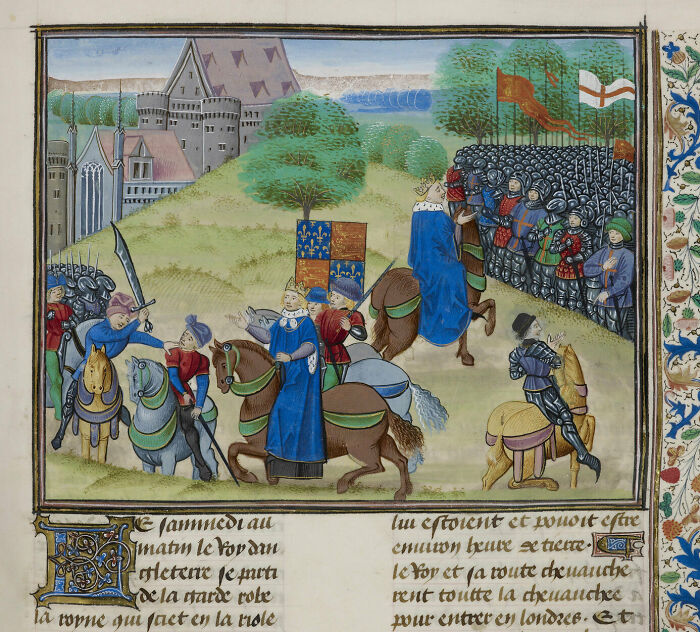 LE samnedi au
matin le Roy dan
gleterre se parti
de la garde robe
la royne qui sciet en la riole
lui estoient et pouoit estre
environ heure de tierce.
le Roy et sa route chevauche
rent toutte la chevauchee
pour entrer en londres. Et